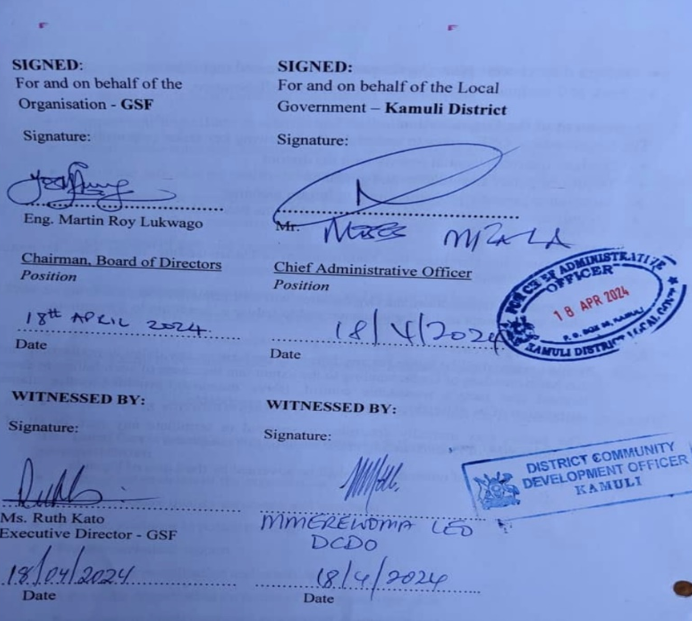 SIGNED:
For and on behalf of the
Organisation - GSF
Signature:
Eng. Martin Roy Lukwago
Chairman, Board of Directors
Position
18th APRIL 2024.
Date
SIGNED:
For and on behalf of the Local
Government – Kamuli District
Signature:
Mr.
Chief Administrative Officer
Position
18/4/2024
Date
FOR CHIEF ADMINISTRATIVE
OFFICER
18 APR 2024
KAMULI DISTRICT LOCAL GOVT
WITNESSED BY:
Signature:
Ms. Ruth Kato
Executive Director - GSF
18/04/2024
Date
WITNESSED BY:
Signature:
LEO
DCDO
18/4/2024
Date
DISTRICT COMMUNITY
DEVELOPMENT OFFICER
KAMULI